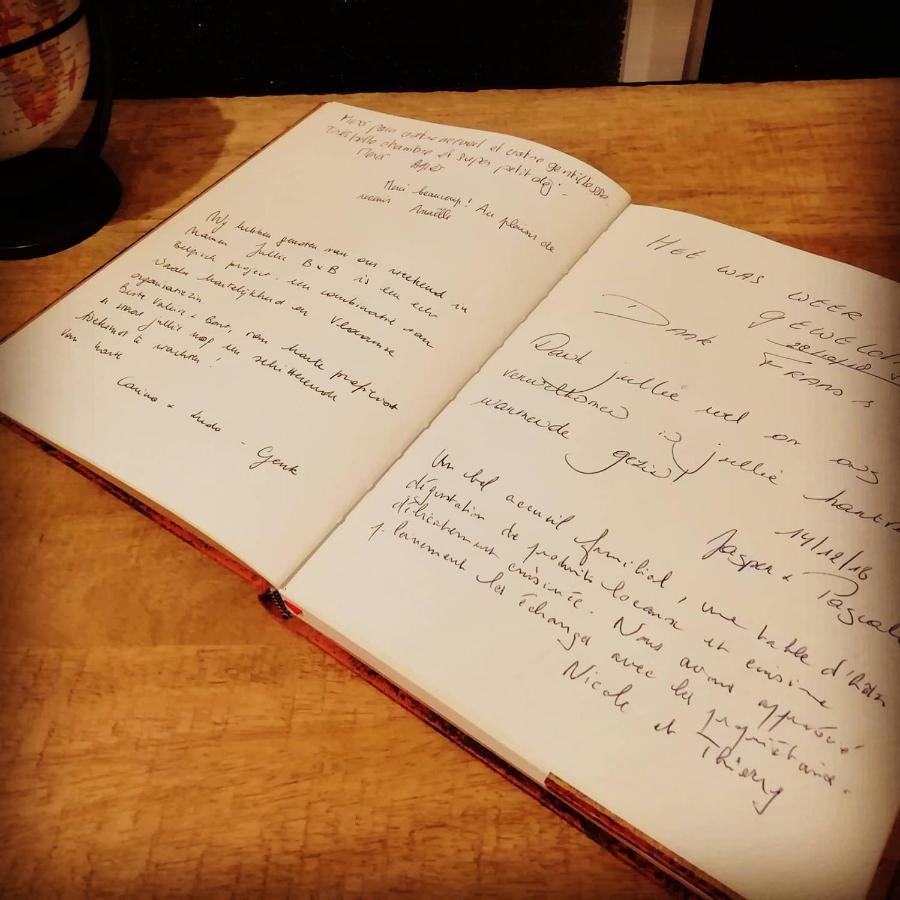 Merci pour votre accueil et votre gentillesse
Très belle chambre et super petit dej.
Merci
Merci beaucoup! Au plaisir de
revenir Anaëlle
Wij hebben genoten van ons weekend in
Namen. Jullie B&B is een echt
Belgisch project. Een combinatie van
Waalse hartelijkheid en Vlaamse
organisatiezin
Beste Valérie & Bart, van harte proficiat
& moge jullie nog een schitterende
toekomst te wachten!
Van harte
Carina & Ludo - Genk
HET WAS WEER
GEWELDI
28/10/18
DANK FRANS &
Dank jullie wel om ons
verwelkomen in jullie
warmende gezin
14/12/18
Jasper & Pascale
Un bel accueil familial, une table d'hôtes
dégustation de produits locaux et cuisine
délicatement cuisinée. Nous avons apprécié
pleinement les échanges avec les propriétaires.
Nicole et Thierry